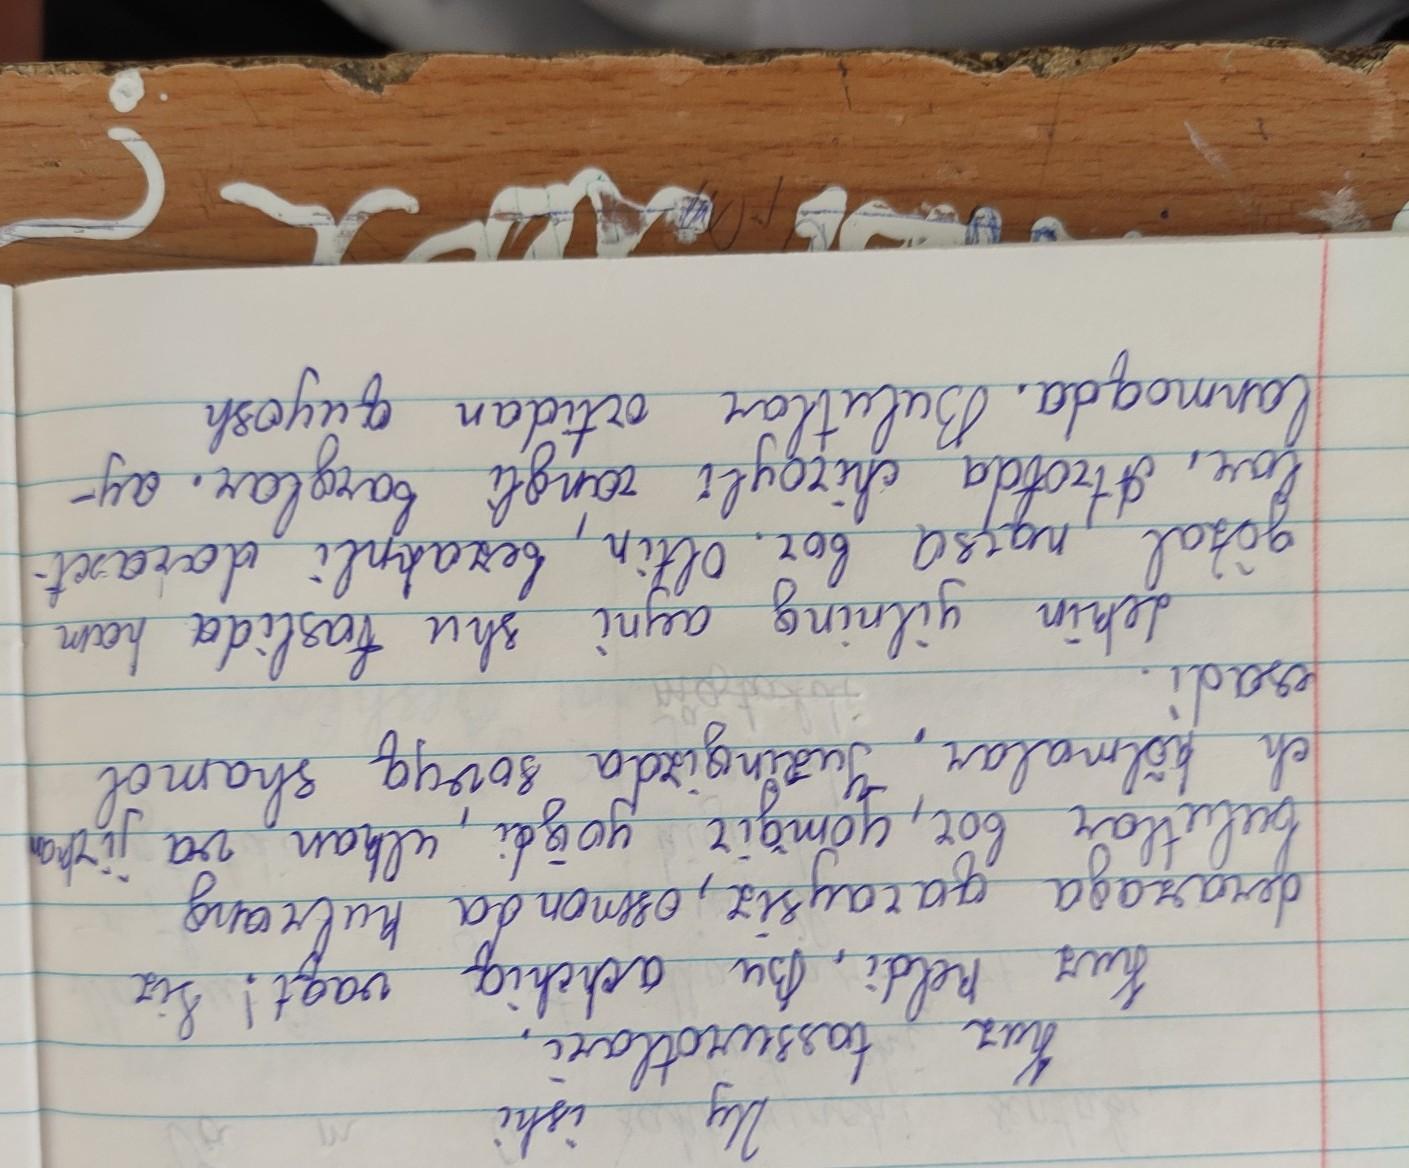 Uy ishi
Kuz tassurotlari.
Kuz keldi. Bu achchiq vaqt! Siz
derazaga qaraysiz, osmonda kulrang
bulutlar bor, yomg'ir yog'di, ulkan va jirkan
ch ko'lmalar, Yuzingizda sovuq shamol
esadi.
Lekin yilning ayni shu faslida ham
go'zal narsa bor. Oltin, bezakli daraxt-
lar. Atrofda chiroyli rangli barglar. ay-
lanmoqda. Bulutlar ortidan quyosh